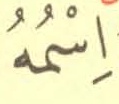 اِسْمُهُ